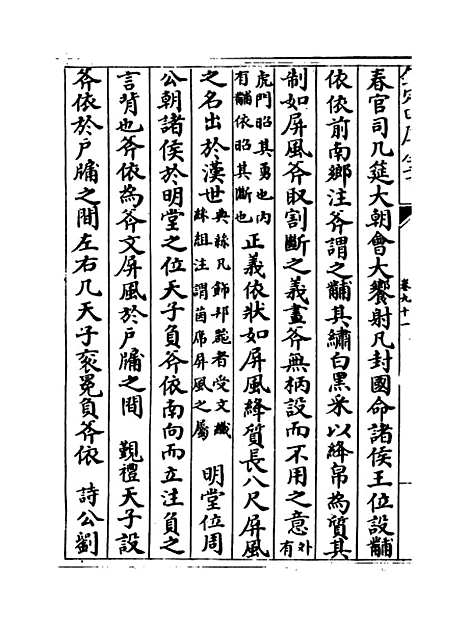 卷九十一
春官司几筵大朝會大饗射凡封國命諸侯王位設黼
依依前南鄉注斧謂之黼其繡白黑采以絳帛為質其
制如屏風斧取割斷之義畫斧無柄設而不用之意外有
虎門昭其勇也内有黼依昭其斷也正義依狀如屏風絳質長八尺屏風
之名出於漢世典絲凡飾邦器者受文織絲組注謂茵席屏風之屬 明堂位周
公朝諸侯於明堂之位天子負斧依南向而立注負之
言背也斧依為斧文屏風於戶牖之間 覲禮天子設
斧依於戶牖之間左右几天子衮冕負斧依 詩公劉